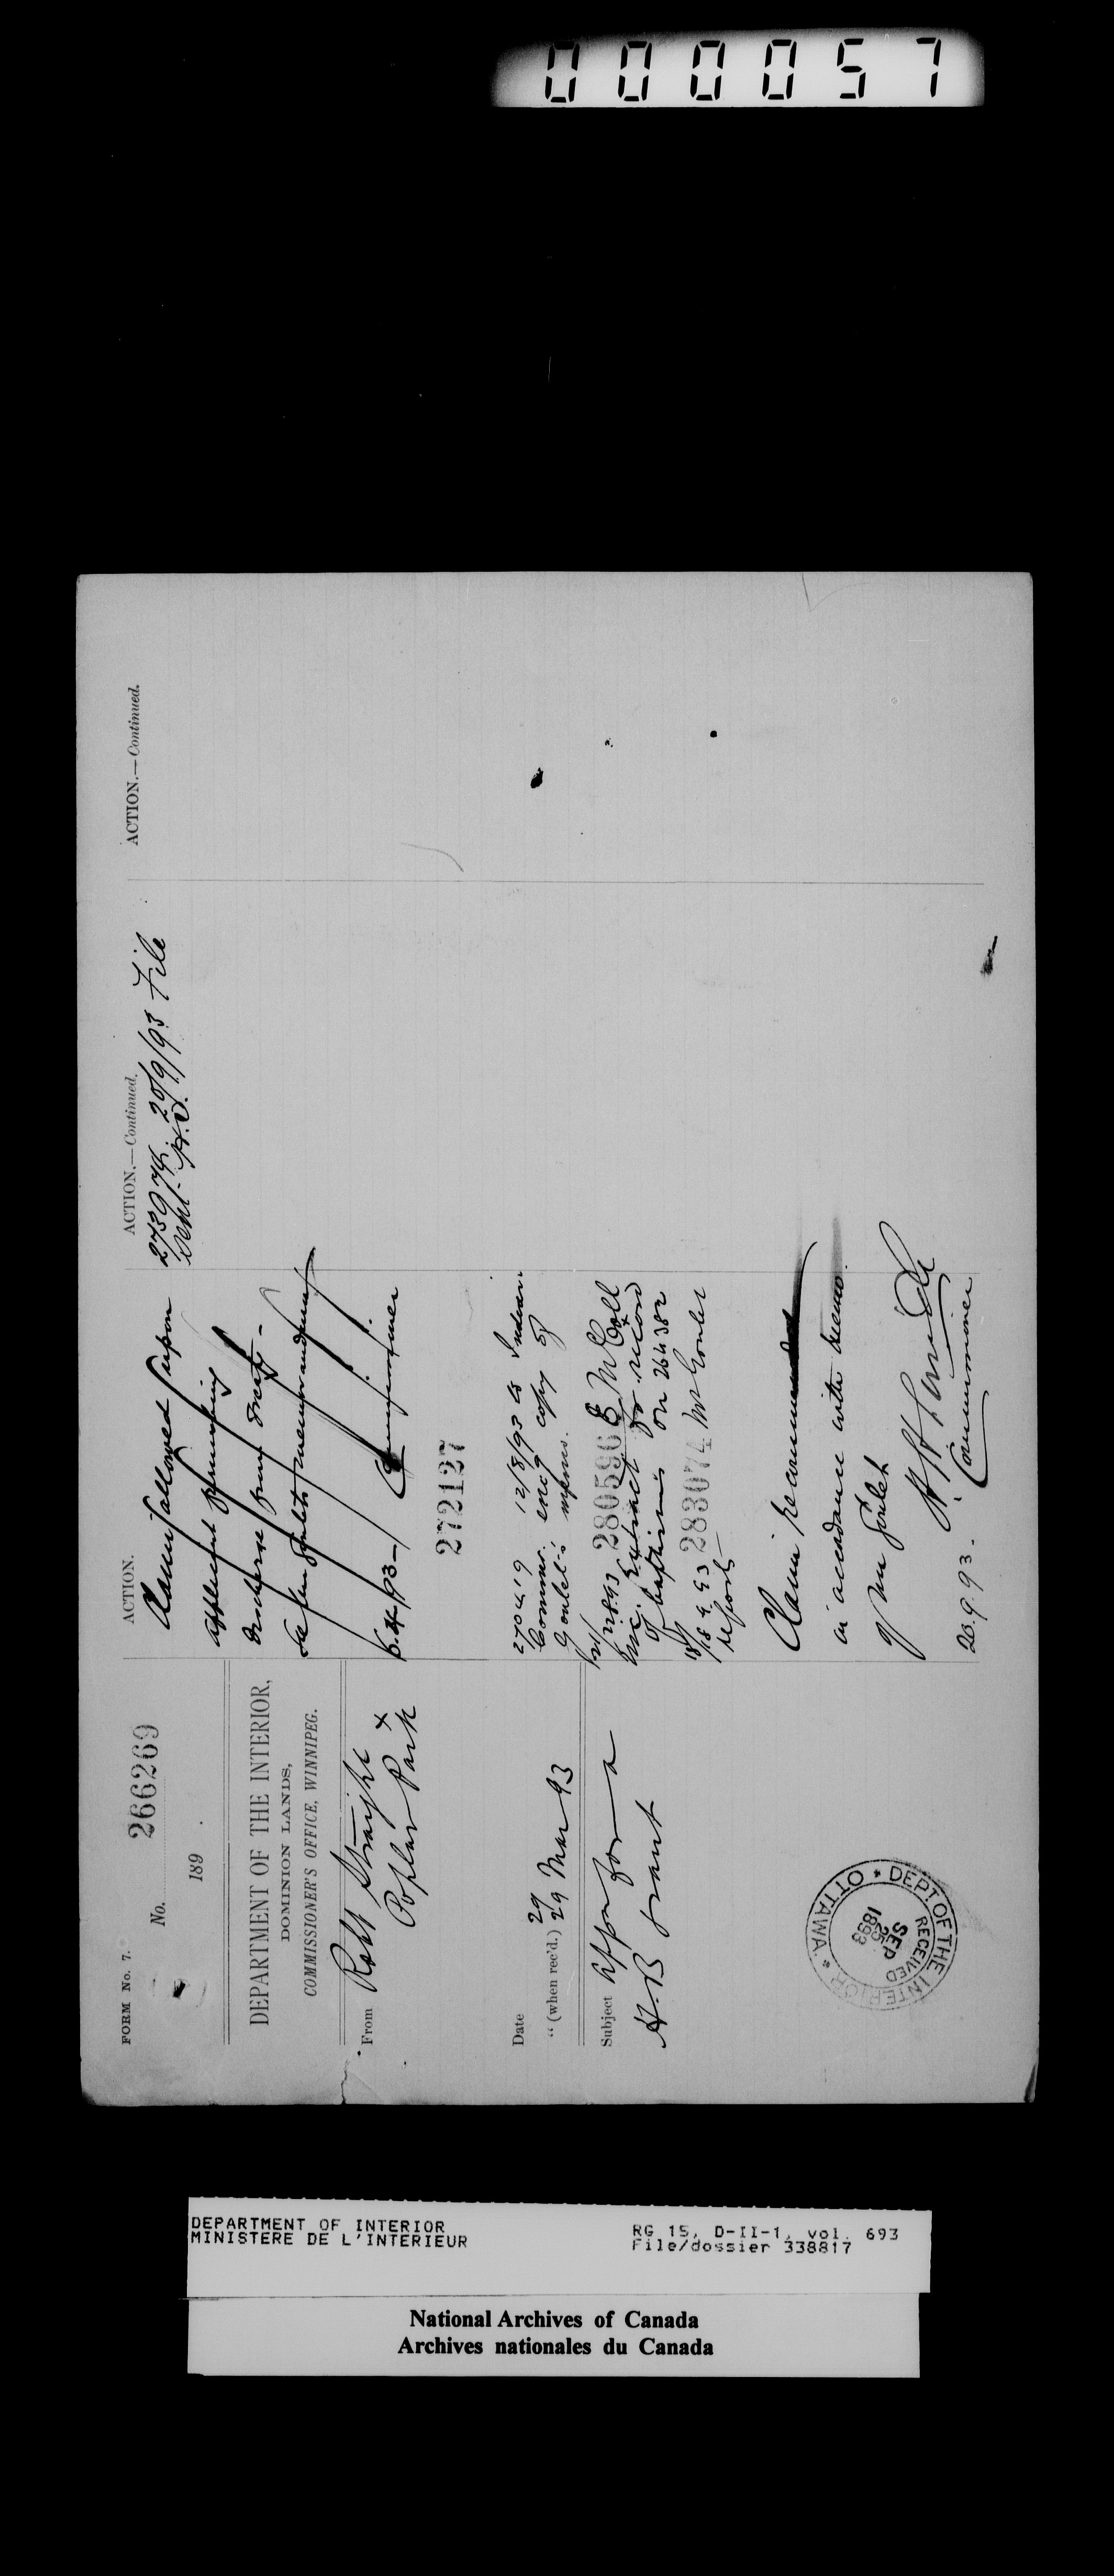 000057
FORM No. 7.
No. 266269
189 .
DEPARTMENT OF THE INTERIOR,
DOMINION LANDS,
COMMISSIONER'S OFFICE, WINNIPEG.
From Robt Straight
Poplar Park
Date 29
" (when rec'd.) 29 Mar 93
Subject Appn for a
H.B grant
DEPT. OF THE INTERIOR * OTTAWA *
RECEIVED
SEP
25
1893
ACTION.
Claim allowed upon
applicant furnishing
discharge from treaty -
memorandum
6.4.93 - Commissioner
272127
270419 12/8/93 to Indian
Commr. encg copy of
Goulet's memo.
280596 E McColl
enc. Extract for record
of baptism on 264382
18.9.93 283074 Mr Goulet
reports
Claim recommended
in accordance with memo.
of Mr Goulet
20.9.93.
Commissioner
ACTION.—Continued.
273974. 20/9/93 File
sent H.O.
ACTION.—Continued.
DEPARTMENT OF INTERIOR
MINISTERE DE L'INTERIEUR
RG 15, D-II-1, vol. 693
File/dossier 338817
National Archives of Canada
Archives nationales du Canada